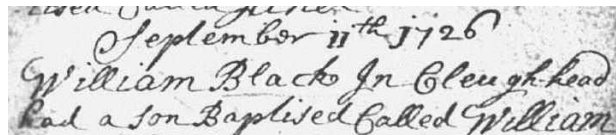 September 11th 1726
William Black In Cleughhead
had a son Baptised Called William